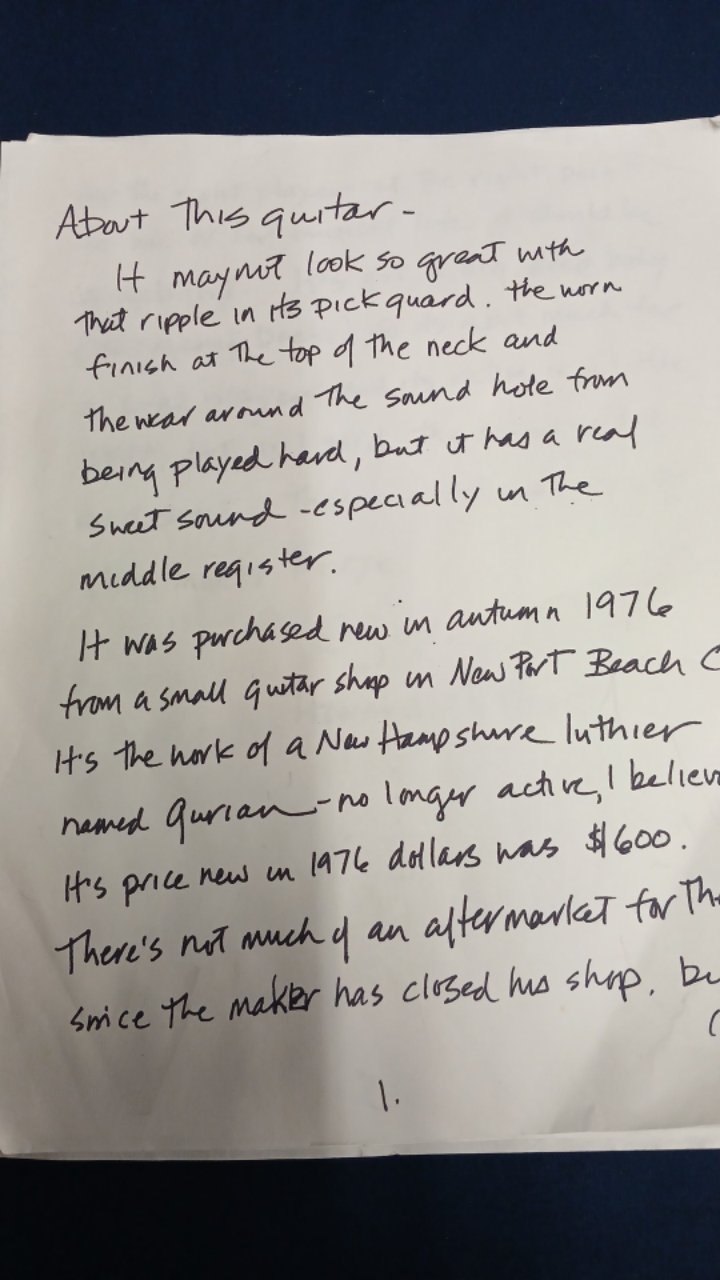 About This guitar -
It may not look so great with
that ripple in its pickguard. the worn
finish at The top of the neck and
the wear around The sound hole from
being played hard, but it has a real
sweet sound - especially in The
middle register.
It was purchased new in autumn 1976
from a small guitar shop in NewPort Beach C
It's the work of a New Hampshire luthier
named Gurian - no longer active, I believ
It's price new in 1976 dollars was $600.
There's not much of an aftermarket for Th
since the maker has closed his shop. bu
(
1.